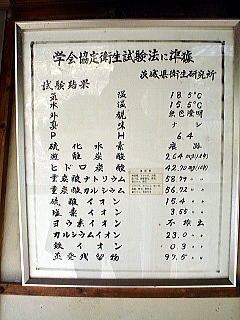 学会協定衛生試験法に準據
茨城県衛生研究所
試験結果
気温 18.5°C
水温 15.5°C
外観 無色澄明
味 ナシ
PH 6.4
硫化水素 痕跡
遊離炭酸 2.64
ヒドロ炭酸 42.70
重炭酸ナトリウム 58.79 〃
重炭酸カルシウム 56.72 〃
硫酸イオン 15.4 〃
塩素イオン 3.55 〃
ヨウ素イオン 不検出
カルシウムイオン 23.0 〃
鉄イオン 0.3 〃
蒸発残留物 97.5 〃